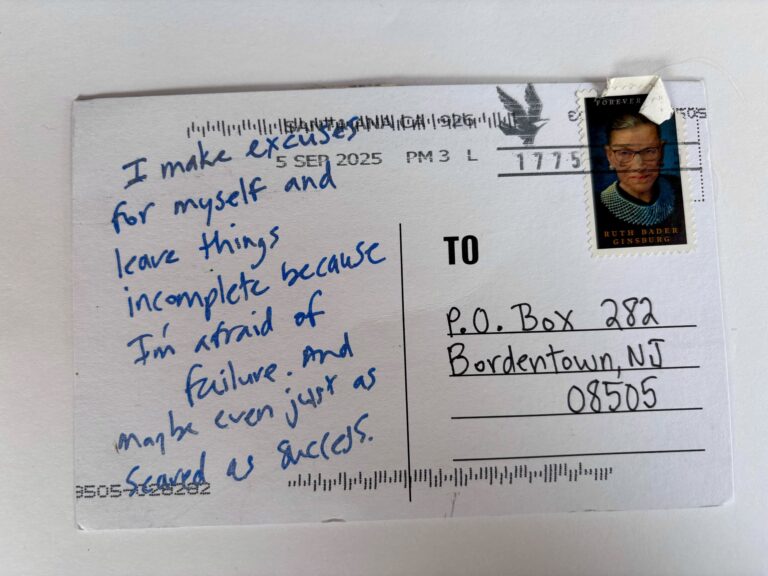 SANTA ANA CA 926
5 SEP 2025 PM 3 L
1775
FOREVER
RUTH BADER
GINSBURG
I make excuses
for myself and
leave things
incomplete because
I'm afraid of
failure. And
maybe even just as
scared as success.
TO
P.O. Box 282
Bordentown, NJ
08505
8505-028282